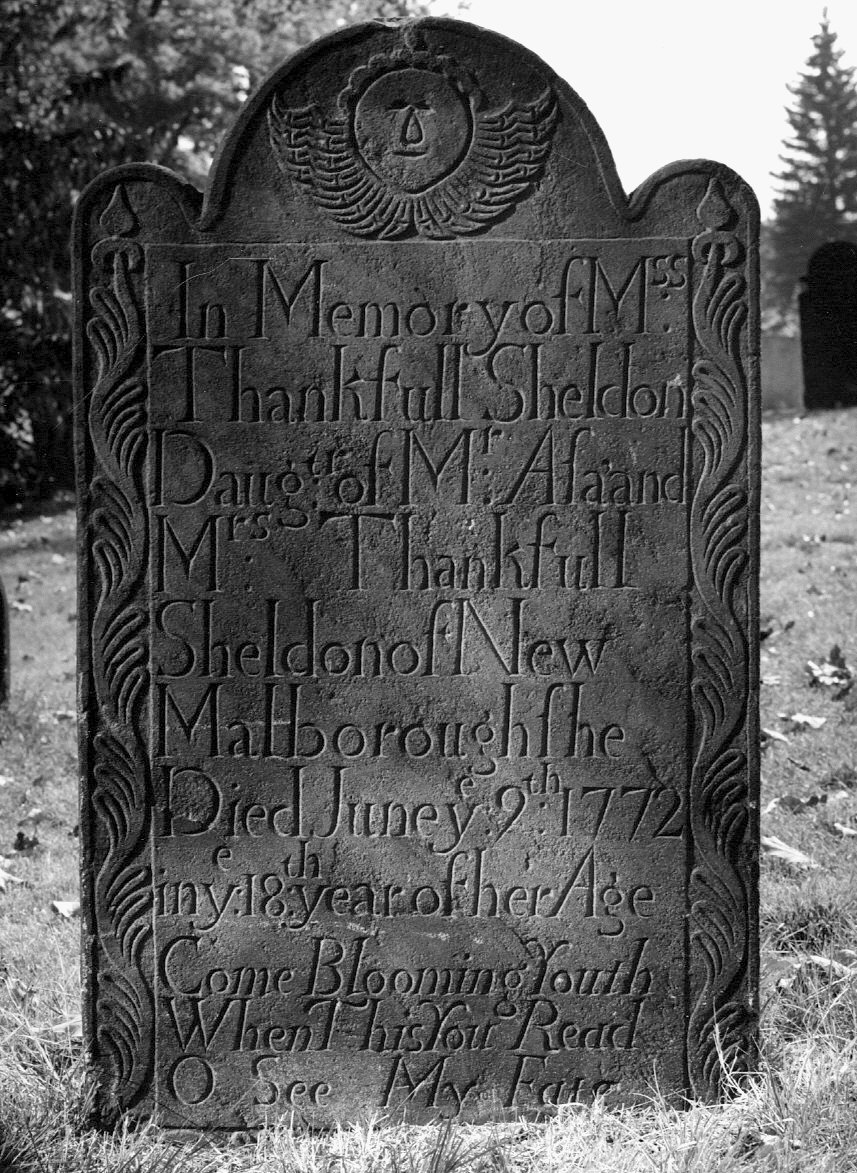 In Memory of Mſs:
Thankfull Sheldon
Daugtr: of Mr: Aſa and
Mrs: Thankfull
Sheldon of New
Malborough ſhe
Died June ye: 9th: 1772
in ye: 18th: year of her Age
Come Blooming Youth
When This You Read
O See My Fate